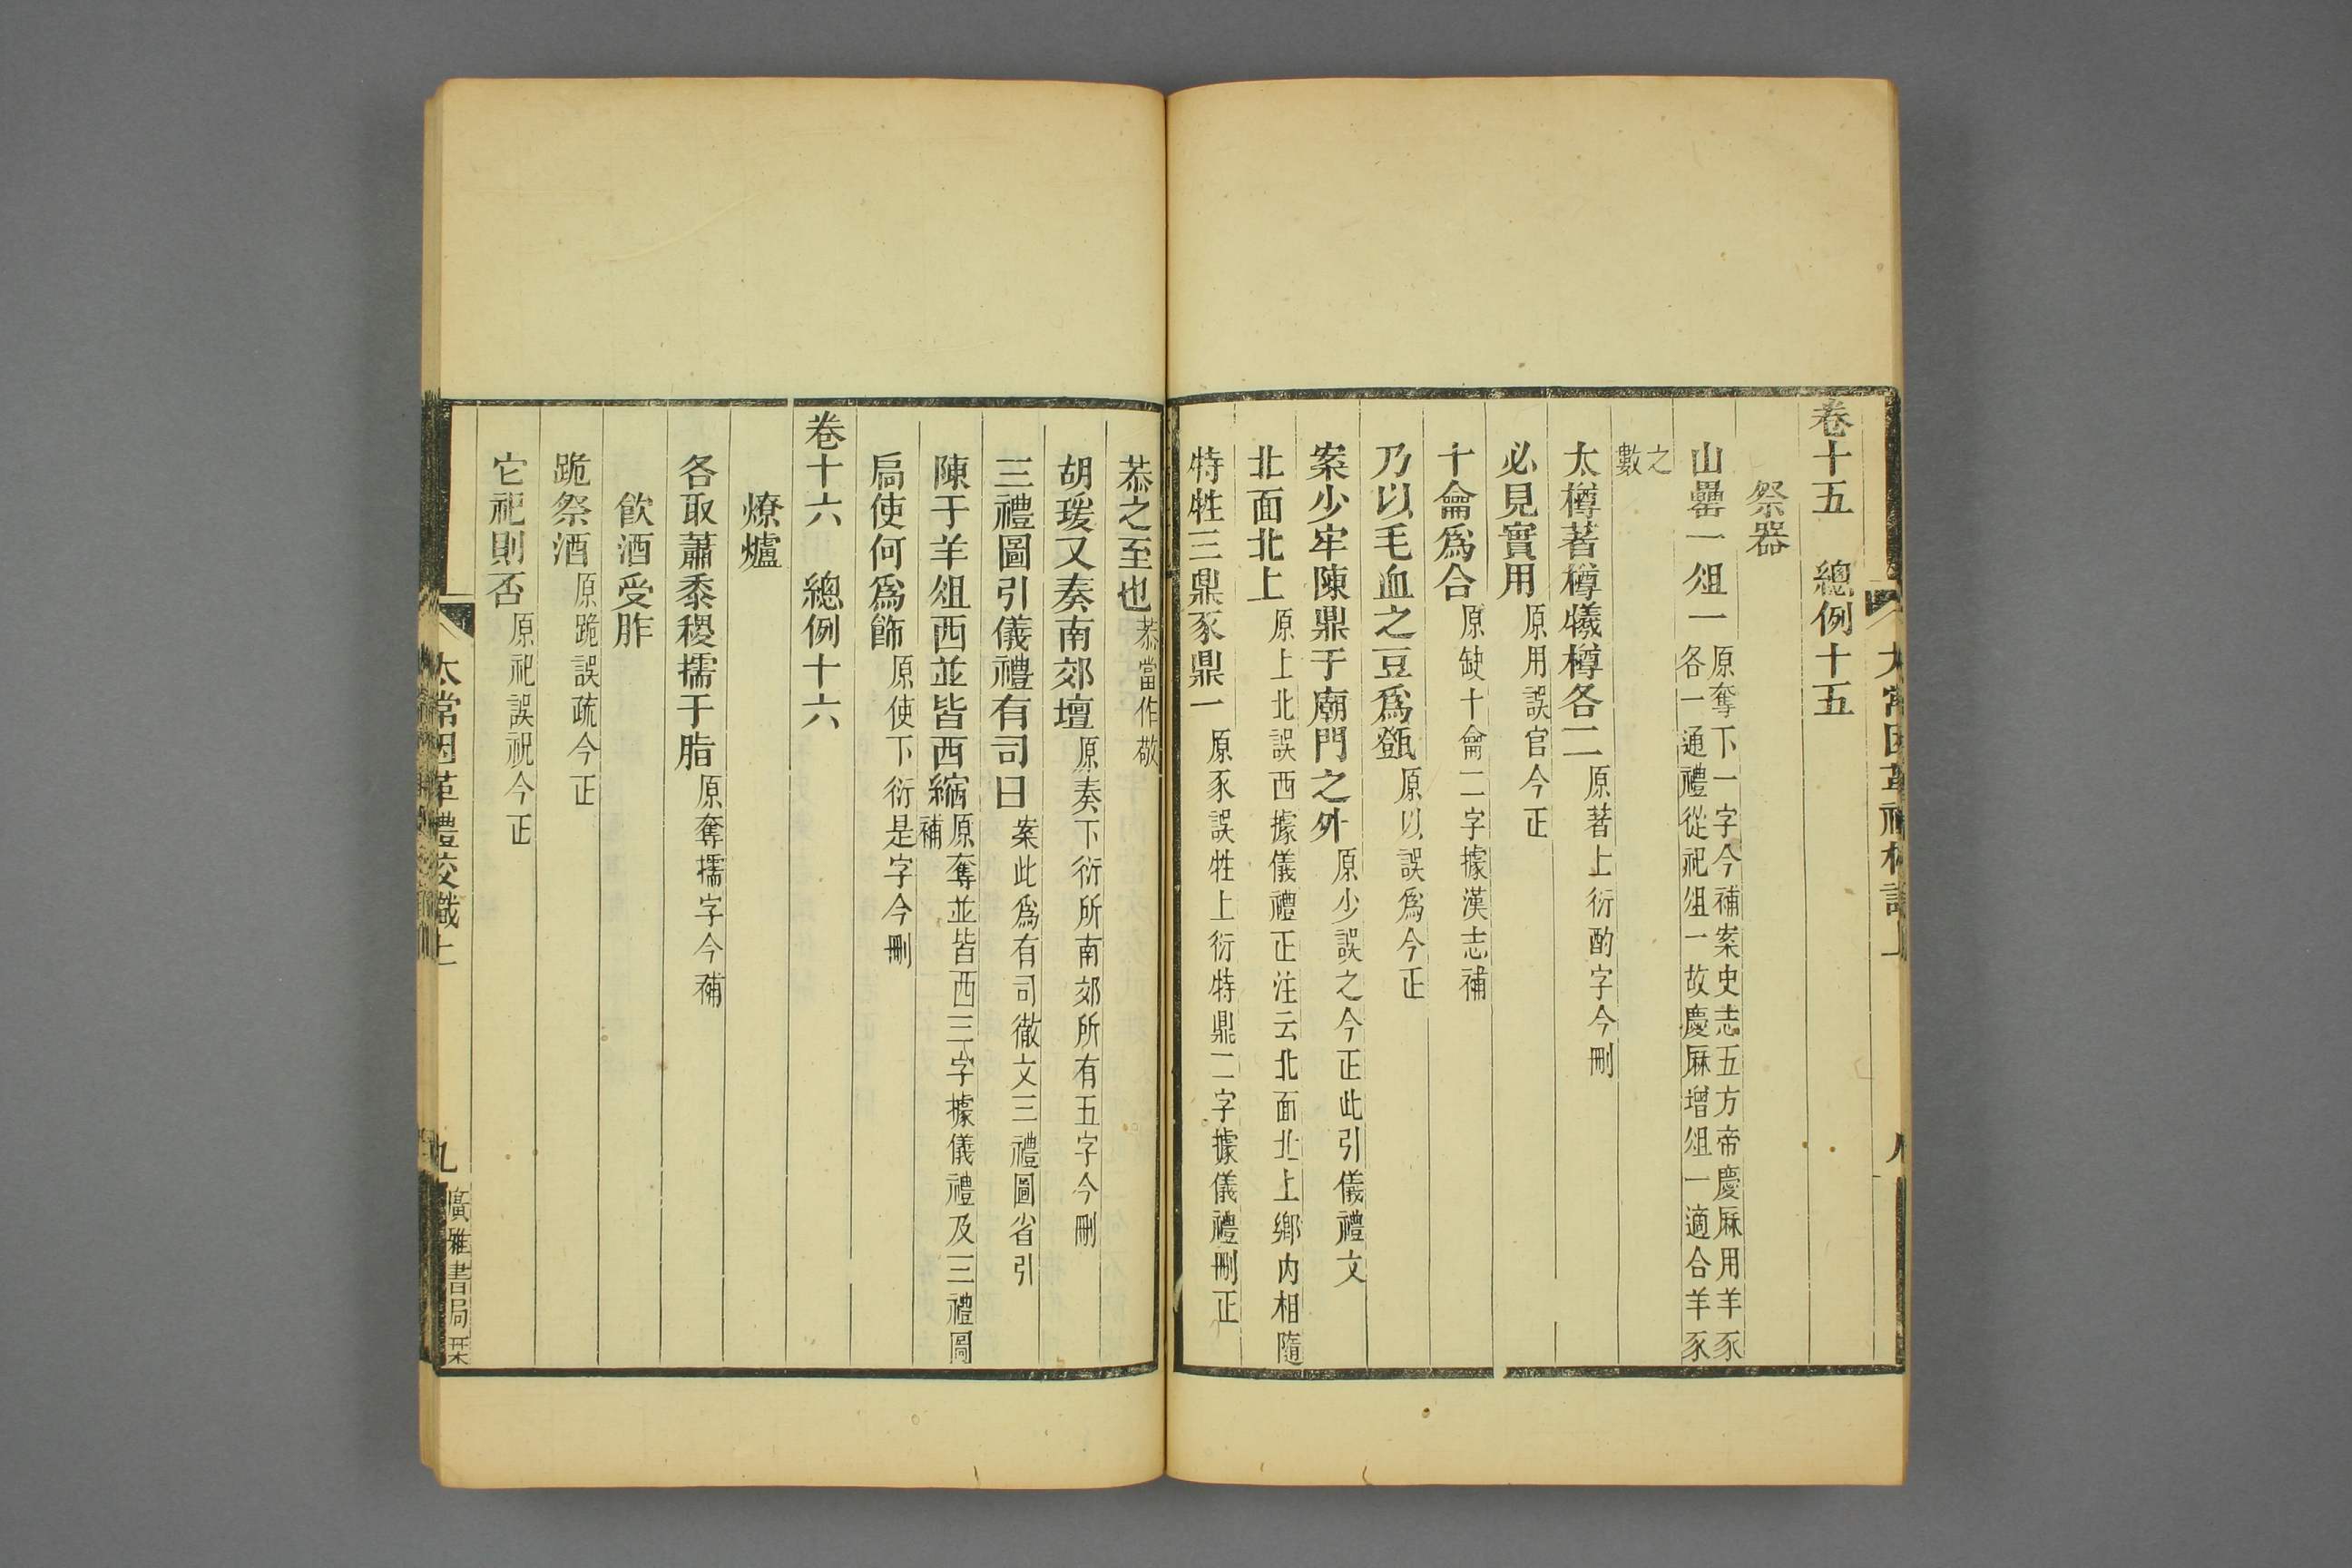 卷十五　總例十五
祭器
山罍一俎一原奪下一字今補案史志五方帝慶厤用羊豕
各一通禮從祀俎一故慶厤增俎一適合羊豕
之
數
太樽著樽犧樽各二原著上衍酌字今刪
必見實用原用誤官今正
十龠爲合原缺十龠二字據漢志補
乃以毛血之豆爲㽅原以誤爲今正
案少牢陳鼎于廟門之外原少誤之今正此引儀禮文
北面北上原上北誤西據儀禮正注云北面北上鄉內相隨
特牲三鼎豕鼎一原豕誤牲上衍特鼎二字據儀禮刪正
恭之至也恭當作敬
胡瑗又奏南郊壇原奏下衍所南郊所有五字今刪
三禮圖引儀禮有司曰案此爲有司徹文三禮圖省引
陳于羊俎西並皆西縮原奪並皆西三字據儀禮及三禮圖
補
扃使何爲飾原使下衍是字今刪
卷十六　總例十六
燎爐
各取蕭黍稷擩于脂原奪擩字今補
飲酒受胙
跪祭酒原跪誤疏今正
它祀則否原祀誤祝今正
太常因革禮校識上
九
廣雅書局栞